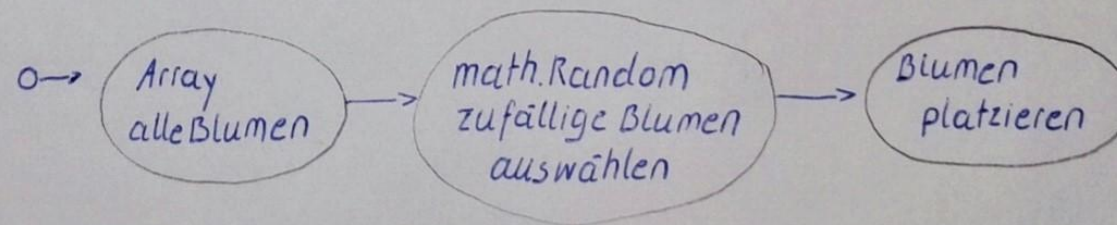 Array
alleBlumen
math.Random
zufällige Blumen
auswählen
Blumen
platzieren